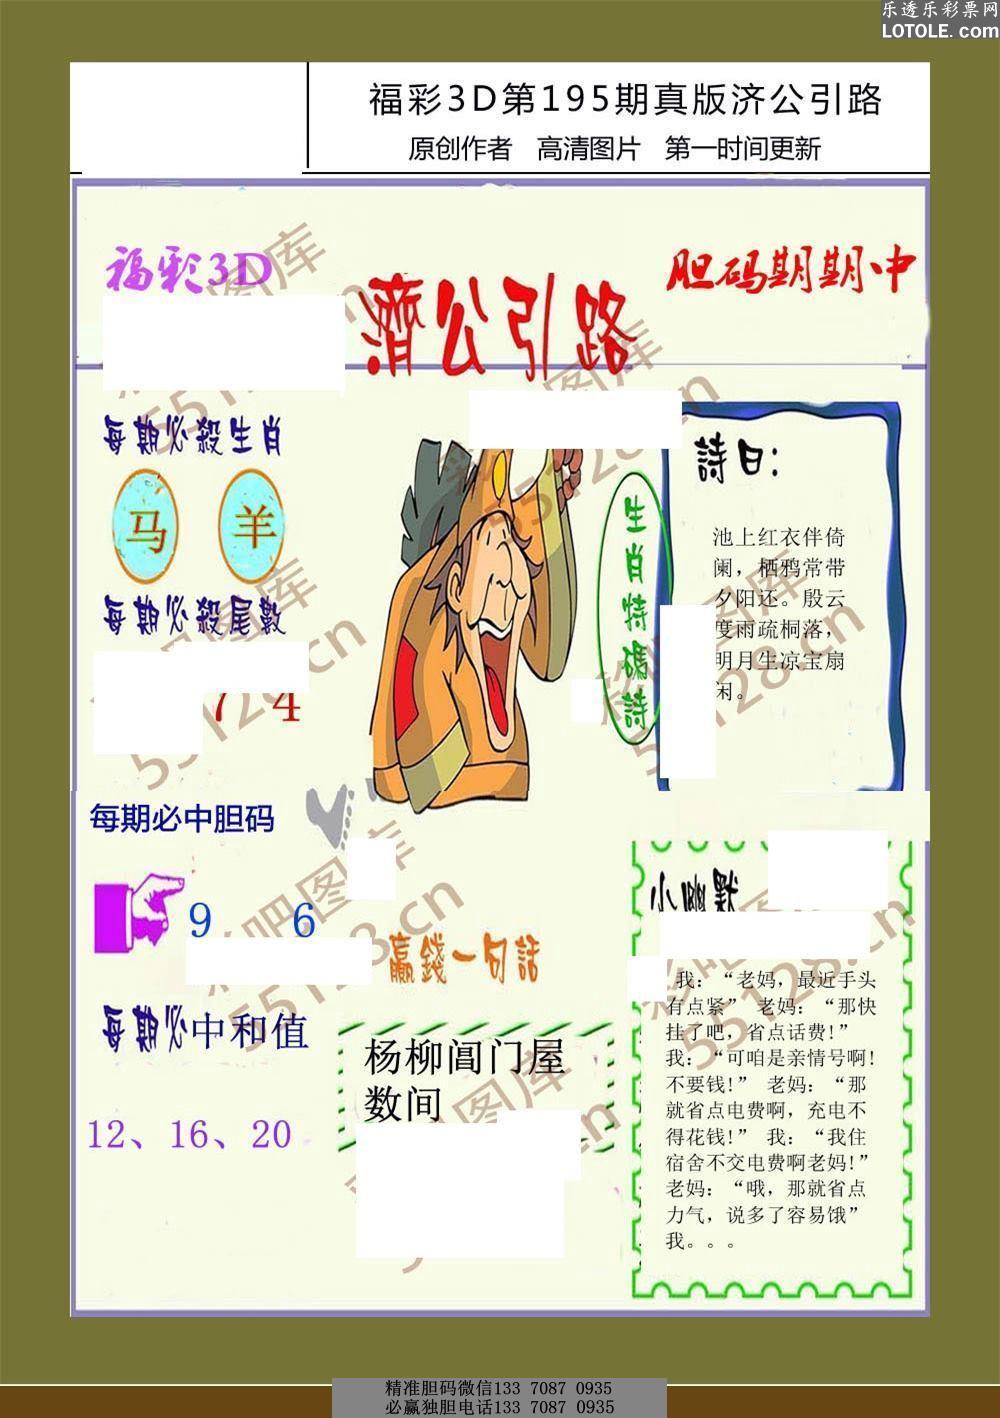 乐透乐彩票网
LOTOLE.com
福彩3D第195期真版济公引路
原创作者 高清图片 第一时间更新
福彩3D
濟公引路
胆码期期中
每期必殺生肖
马 羊
每期必殺尾數
7 4
生肖特碼詩
詩曰：
池上红衣伴倚
阑，栖鸦常带
夕阳还。殷云
度雨疏桐落，
明月生凉宝扇
闲。
每期必中胆码
9 6
每期必中和值
12、16、20
赢錢一句話
杨柳阊门屋
数间
小幽默
我：“老妈，最近手头
有点紧” 老妈：“那快
挂了吧，省点话费！”
我：“可咱是亲情号啊！
不要钱！” 老妈：“那
就省点电费啊，充电不
得花钱！” 我：“我住
宿舍不交电费啊老妈！”
老妈：“哦，那就省点
力气，说多了容易饿”
我。。。
彩吧图库
55128.cn
精准胆码微信133 7087 0935
必赢独胆电话133 7087 0935